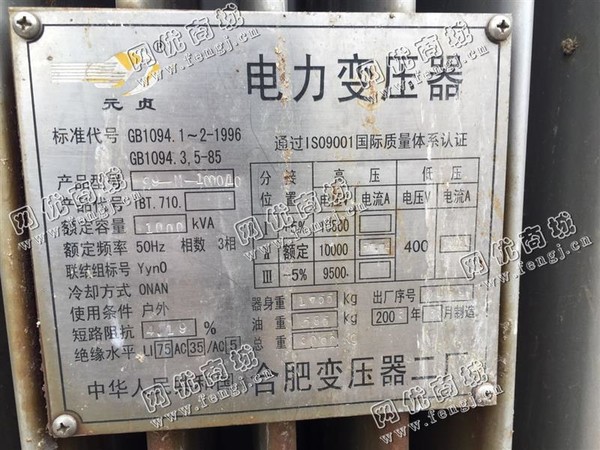 元贞
电力变压器
标准代号 GB1094.1~2-1996
GB1094.3,5-85
通过ISO9001国际质量体系认证
产品型号
产品代号 1BT.710.
额定容量 1000 kVA
额定频率 50Hz 相数 3相
联结组标号 Yyn0
冷却方式 ONAN
使用条件 户外
短路阻抗 %
绝缘水平 LI 75 AC 35 /AC 5
分接 高压 低压
位置 电压V 电流A 电压V 电流A
5%
II 额定 10000 400
III -5% 9500
器身重 kg 出厂序号
油重 kg 200 年 月制造
总重 kg
中华人民共和国 合肥变压器二厂
网优商城
www.fengj.com.cn